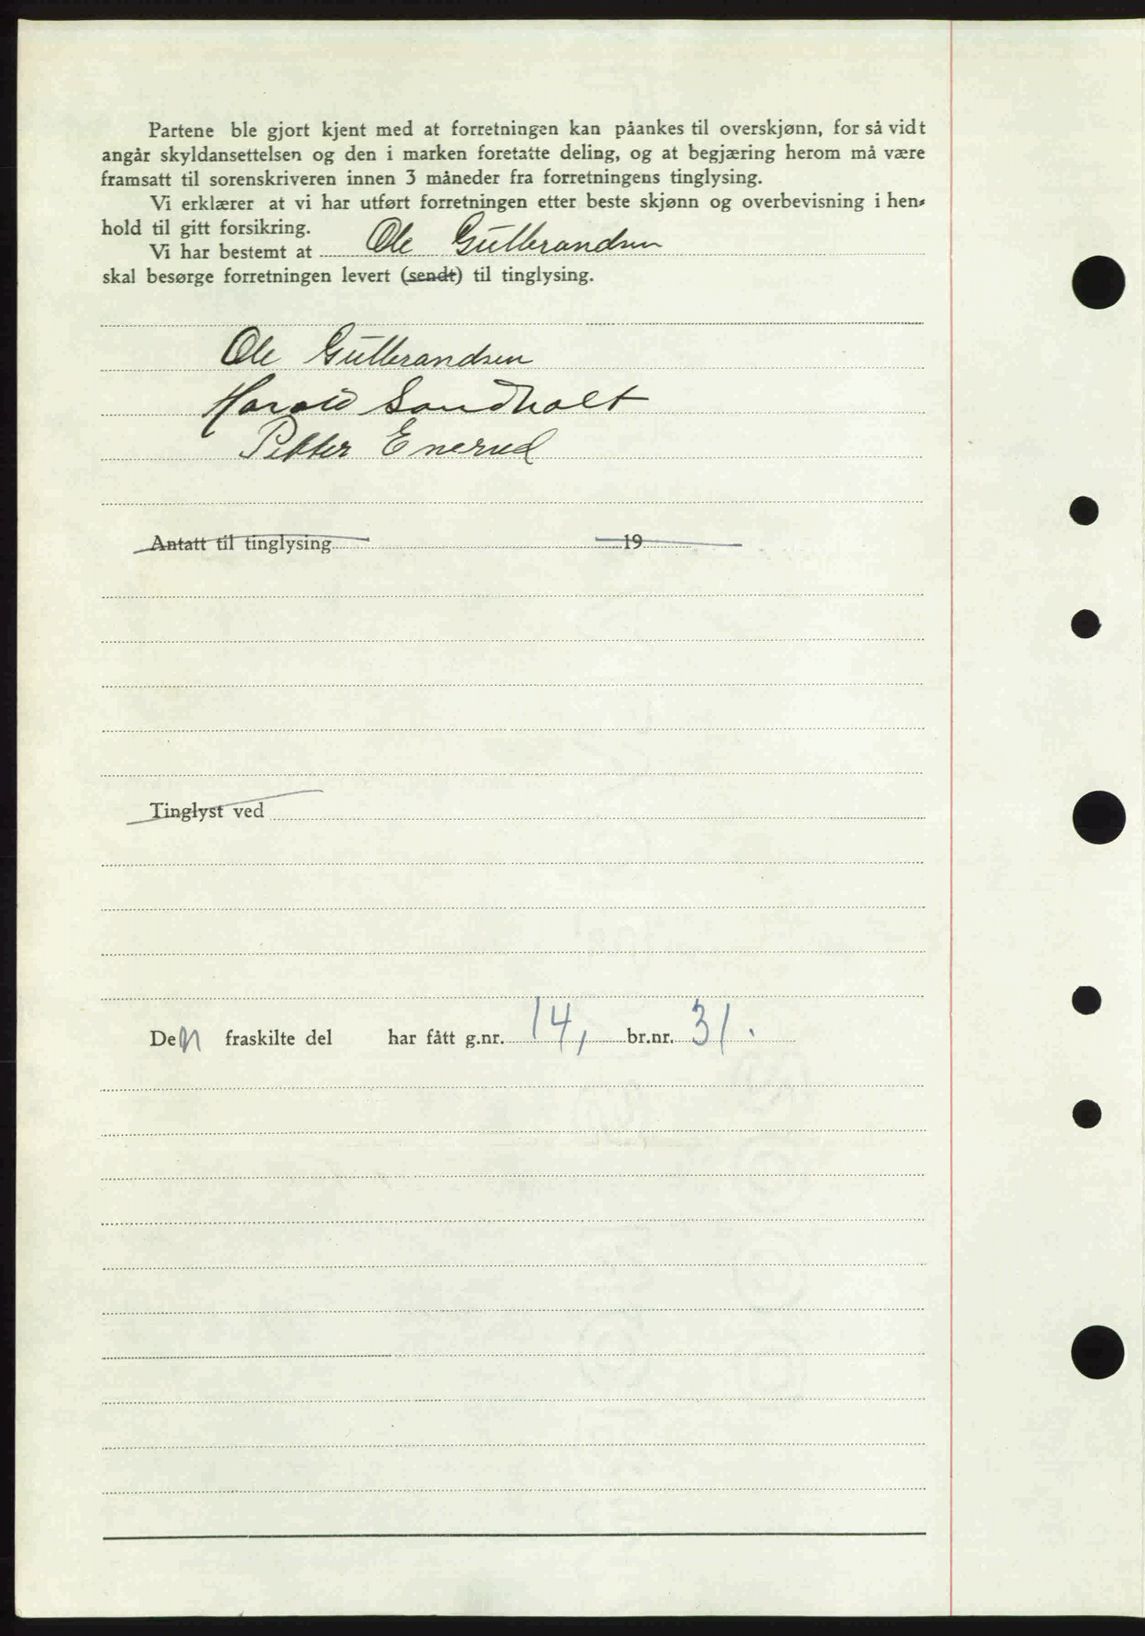 Partene ble gjort kjent med at forretningen kan påankes til overskjønn, for så vidt
angår skyldansettelsen og den i marken foretatte deling, og at begjæring herom må være
framsatt til sorenskriveren innen 3 måneder fra forretningens tinglysing.
Vi erklærer at vi har utført forretningen etter beste skjønn og overbevisning i hen-
hold til gitt forsikring.
Vi har bestemt at Ole Gulbrandsen
skal besørge forretningen levert (sendt) til tinglysing.
Ole Gulbrandsen
Harald Sandholt
Petter Enerud
Antatt til tinglysing 19
Tinglyst ved
Den fraskilte del har fått g.nr. 14, br.nr. 31.